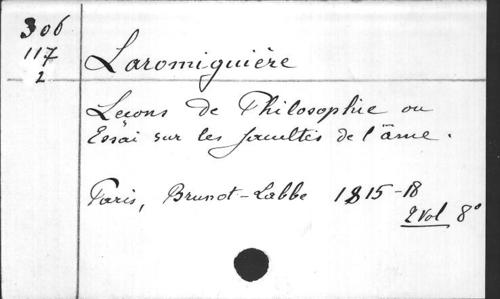 306
117
2
Laromiguière
Leçons de Philosophie ou
Essai sur les facultés de l'âme.
Paris, Brunot-Labbe 1815-18
2 Vol 8°